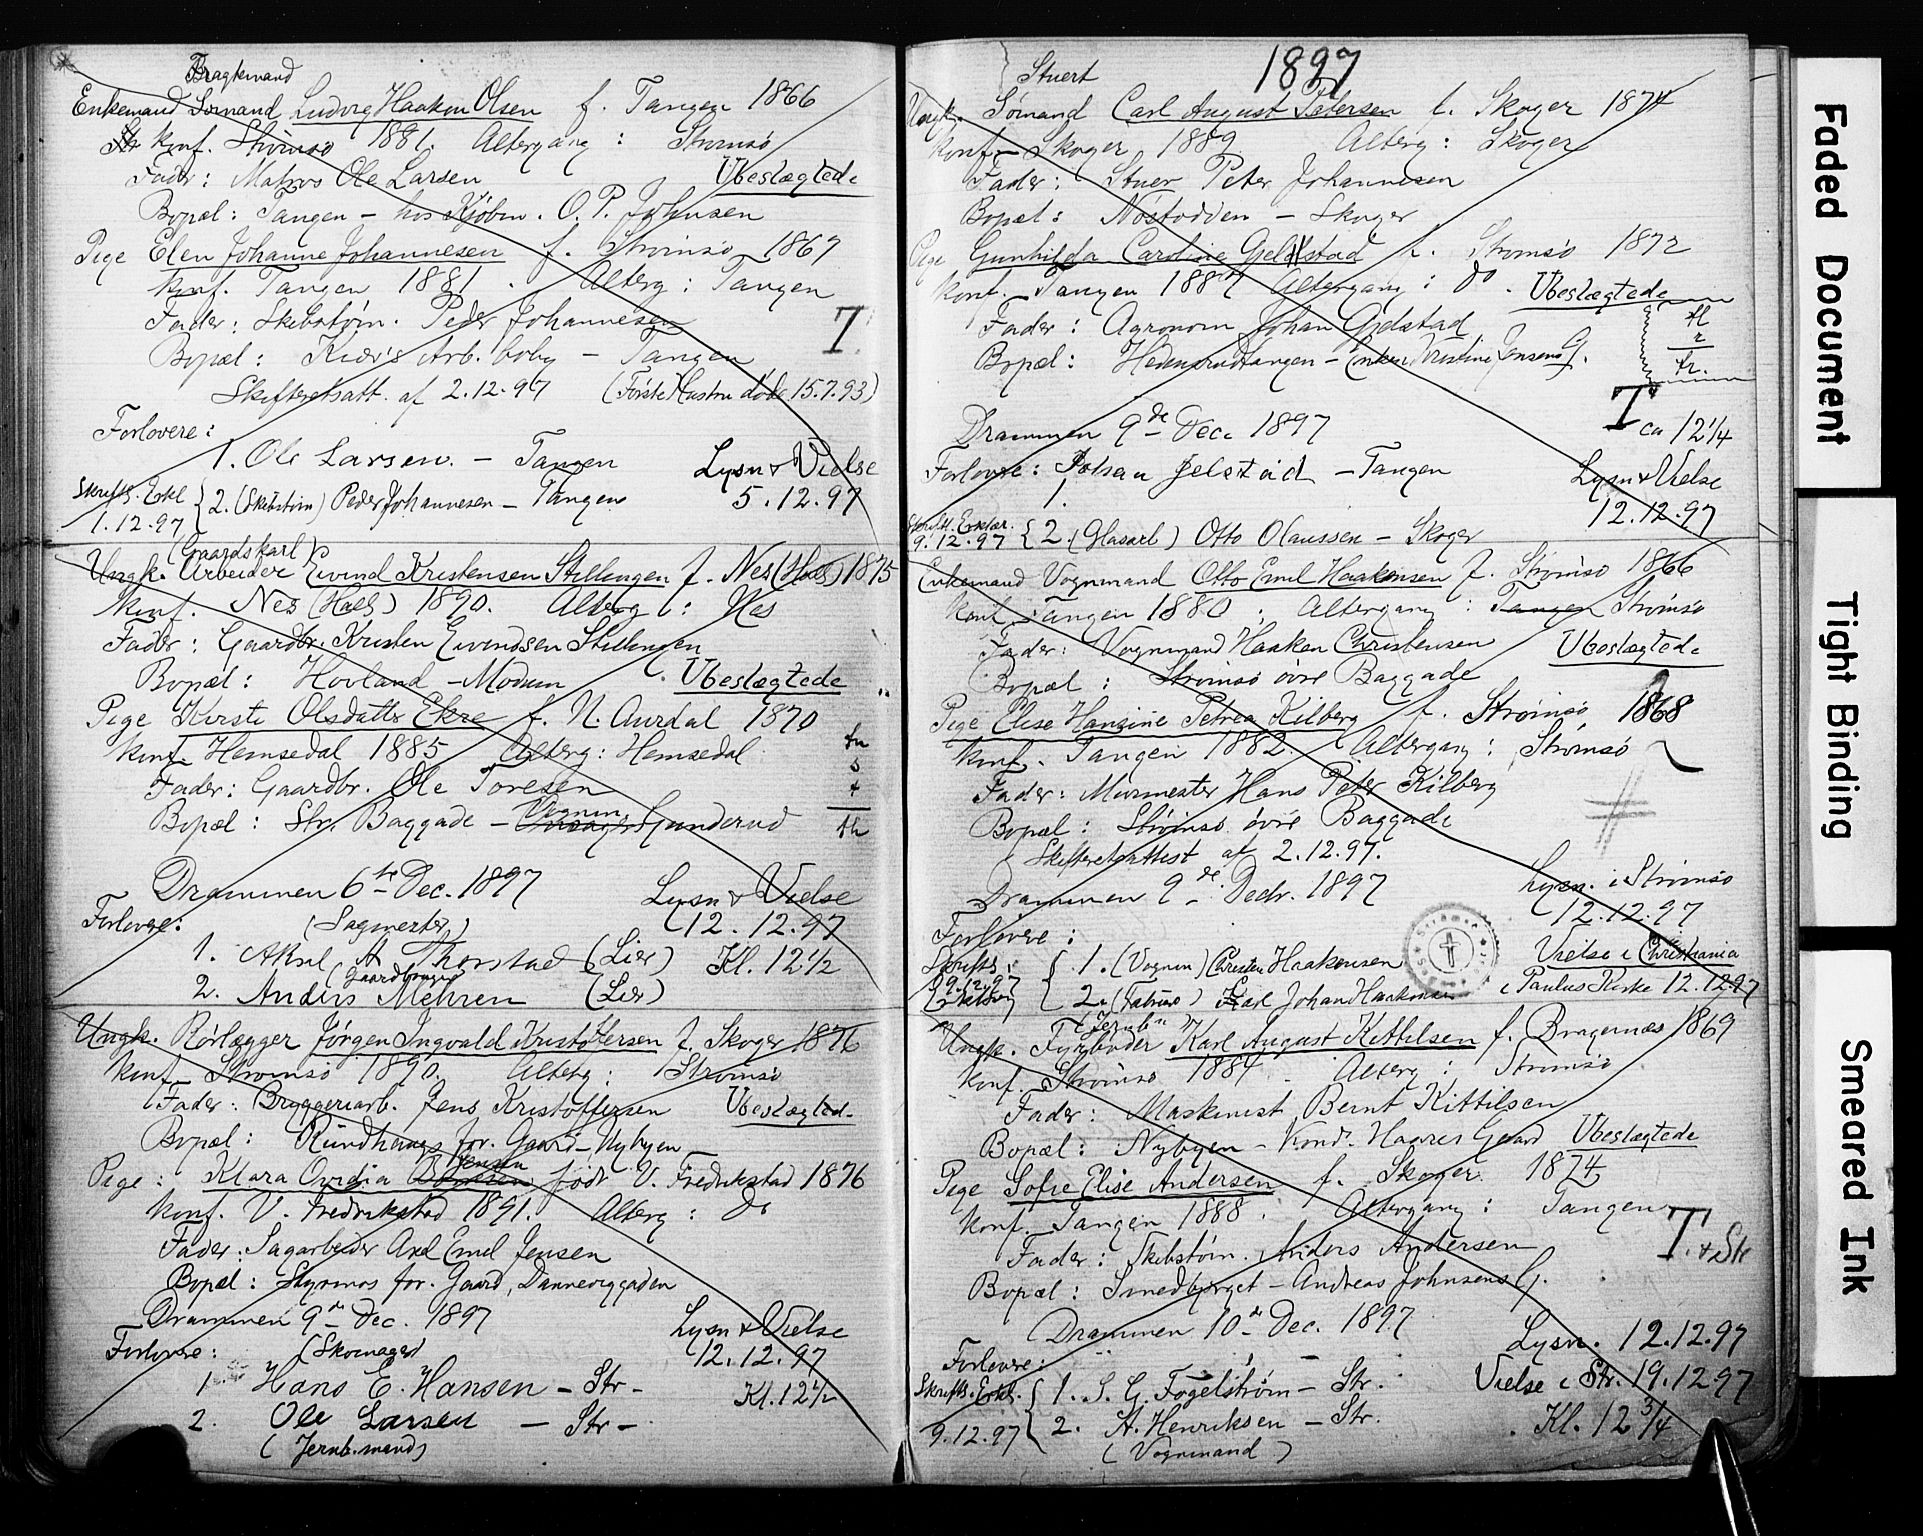 Fragtemand
Enkemand Sømand Ludvig Haaken Olsen f. Tangen 1866
Konf. Strømsø 1881. Altergang: Strømsø
Fader: Matros Ole Larsen Ubeslægtede
Bopæl: Tangen - hos Kjøbm. O. P. Johnsen
Pige Elen Johanne Johannesen f. Strømsø 1867
Konf. Tangen 1881. Alterg: Tangen
Fader: Skibstøm. Peder Johannesen T.
Bopæl: Kiær's Arb. bolig - Tangen
Skifteretsatt. af 2.12.97 (Første Hustru døde 15.7.93)
Forlovere:
1. Ole Larsen. - Tangen Lysn & Vielse
Skriftl. Erkl 1.12.97 { 2. (Skibstøm) Peder Johannesen - Tangen 5.12.97
(Gaardskarl)
Ungk. Arbeider Eivind Kristensen Stillingen f. Nes (Hall) 1875
Konf. Nes (Hall) 1890. Alterg: Nes
Fader: Gaardbr. Kristen Eivindsen Stillingen
Bopæl: Hovland - Modum. Ubeslægtede
Pige Kirsti Olsdatter Ekre f. N. Aurdal 1870
Konf. Hemsedal 1885 Alterg: Hemsedal
Fader: Gaardbr. Ole Toresen
Bopæl: Str. Baggade - Vognm. Gunderud
Drammen 6te Dec. 1897 Lysn & Vielse
Forlovere: (Sagmester) 12.12.97
1. Aksel A Thorstad (Lier) Kl. 12 1/2
(Gaardbruger)
2. Anders Mehren (Lier)
Ungk. Rørlægger Jørgen Ingvald Kristoffersen f. Skoger 1876
Konf. Strømsø 1890. Alterg: Strømsø
Fader: Bryggeriarb. Jens Kristoffersen Ubeslægted.
Bopæl: Rundhaugs for. Gaard - Nybyen
Jensen
Pige: Klara Ovidia født V. Fredrikstad 1876
Konf. V. Fredrikstad 1891. Alterg: Do
Fader: Sagarbeider Axel Emil Jensen
Bopæl: Styrmos for. Gaard, Danneviggaden
Drammen 9de Dec. 1897 Lysn & Vielse
Forlovere: (Skomager) 12.12.97
1 Hans E. Hansen - Str - Kl. 12 1/2
2. Ole Larsen - Str -
(Jernb.mand)
1897
Stuert
Ungk. Sømand Carl August Petersen f. Skoger 1874
Konf. Skoger 1889 Alterg: Skoger
Fader: Stuer Peter Johannesen
Bopæl: Nøstodden - Skoger
Pige Gunhilda Caroline Gjelstad f. Strømsø 1872
Konf. Tangen 1887 Altergang: Do. Ubeslægtede
Fader: Agronom Johan Gjelstad
Bopæl: Hedensrudtangen - Enken Kristine Jensens G.
T ca 12 1/4
Drammen 9de Dec. 1897
Forlovere: Johan Gjelstad - Tangen Lysn & Vielse
1. 12.12.97
Skriftl. Erklær. 9.12.97 { 2. (Glasarb) Otto Olaussen - Skoger
Enkemand Vognmand Otto Emil Haakensen f. Strømsø 1866
Konf. Tangen 1880. Altergang: Tangen Strømsø
Fader: Vognmand Haaken Christensen Ubeslægtede
Bopæl: Strømsø øvre Baggade
Pige Elise Hansine Petrea Kilberg f. Strømsø 1868
Konf. Tangen 1882. Altergang: Strømsø
Fader: Murmester Hans Peter Kilberg
Bopæl: Strømsø øvre Baggade
Skifteretsattest af 2.12.97.
Drammen 9de Decbr. 1897 Lysn. i Strømsø
Forlovere: 12.12.97
Skriftl. 9.12.97 { 1. (Vognm) Christen Haakensen Vielse i Christiania
2. Karl Johan Haakensen i Paulus Kirke 12.12.97
(Jernb.)
Ungk. Fyrbøder Karl August Kittilsen f. Bragernæs 1869
Konf. Strømsø 1884. Alterg: Strømsø
Fader: Maskinist Bernt Kittilsen
Bopæl: Nybyen - Kond. Haares Gaard Ubeslægtede
Pige Sofie Elise Andersen f. Skoger 1874
Konf. Tangen 1888. Altergang: Tangen
Fader: Skibstøm. Anders Andersen T. & Sk
Bopæl: Smedbjerget - Andreas Johnsens G.
Drammen 10de Dec. 1897 Lysn. 12.12.97
Forlovere:
Skriftl. Erkl. 9.12.97 { 1. S. G. Fogelstrøm - Str. Vielse i Str. 19.12.97
2. A. Henriksen - Str. Kl. 12 3/4
(Vognmand)
Faded Document
Tight Binding
Smeared Ink